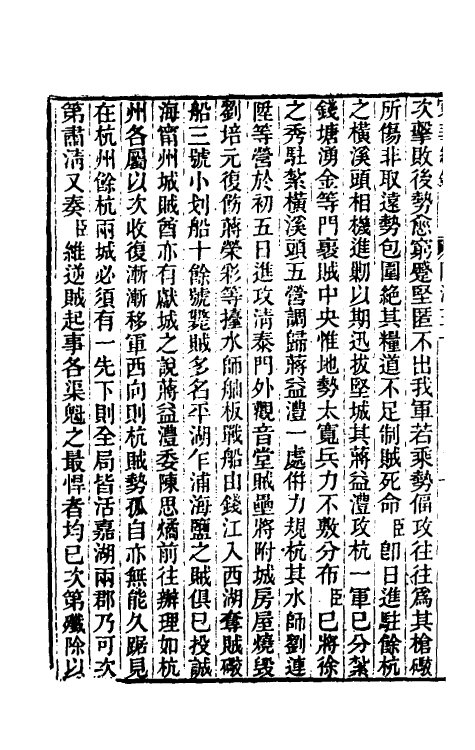 次擊敗後勢愈窮蹙堅匿不出我軍若乘勢偪攻往往爲其槍礮
所傷非取遠勢包圍絶其糧道不足制賊死命臣卽日進駐餘杭
之橫溪頭相機進勦以期迅拔堅城其蔣益澧攻杭一軍已分紮
錢塘湧金等門裹賊中央惟地勢太寛兵力不敷分布臣已將徐
之秀駐紮橫溪頭五營調歸蔣益澧一處倂力規杭其水師劉連
陞等營於初五日進攻淸泰門外觀音堂賊壘將附城房屋燒毀
劉培元復飭蔣榮彩等擡水師舢板戰船由錢江入西湖奪賊礮
船三號小划船十餘號斃賊多名平湖乍浦海鹽之賊俱已投誠
海甯州城賊酋亦有獻城之說蔣益澧委陳思燏前往辦理如杭
州各屬以次收復漸漸移軍西向則杭賊勢孤自亦無能久踞見
在杭州餘杭兩城必須有一先下則全局皆活嘉湖兩郡乃可次
第肅淸又奏臣維逆賊起事各渠魁之最悍者均已次第殲除以